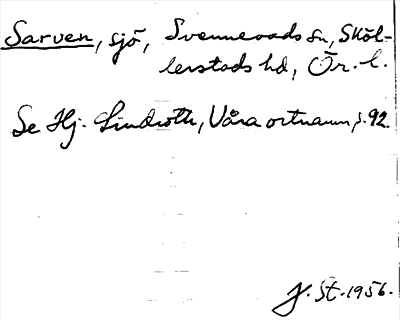 Sarven, sjö, Svennevads sn, Sköl-
lerstads hd, Ör. l.
Se Hj. Lindroth, Våra ortnamn, s. 92.
J. St. 1956.